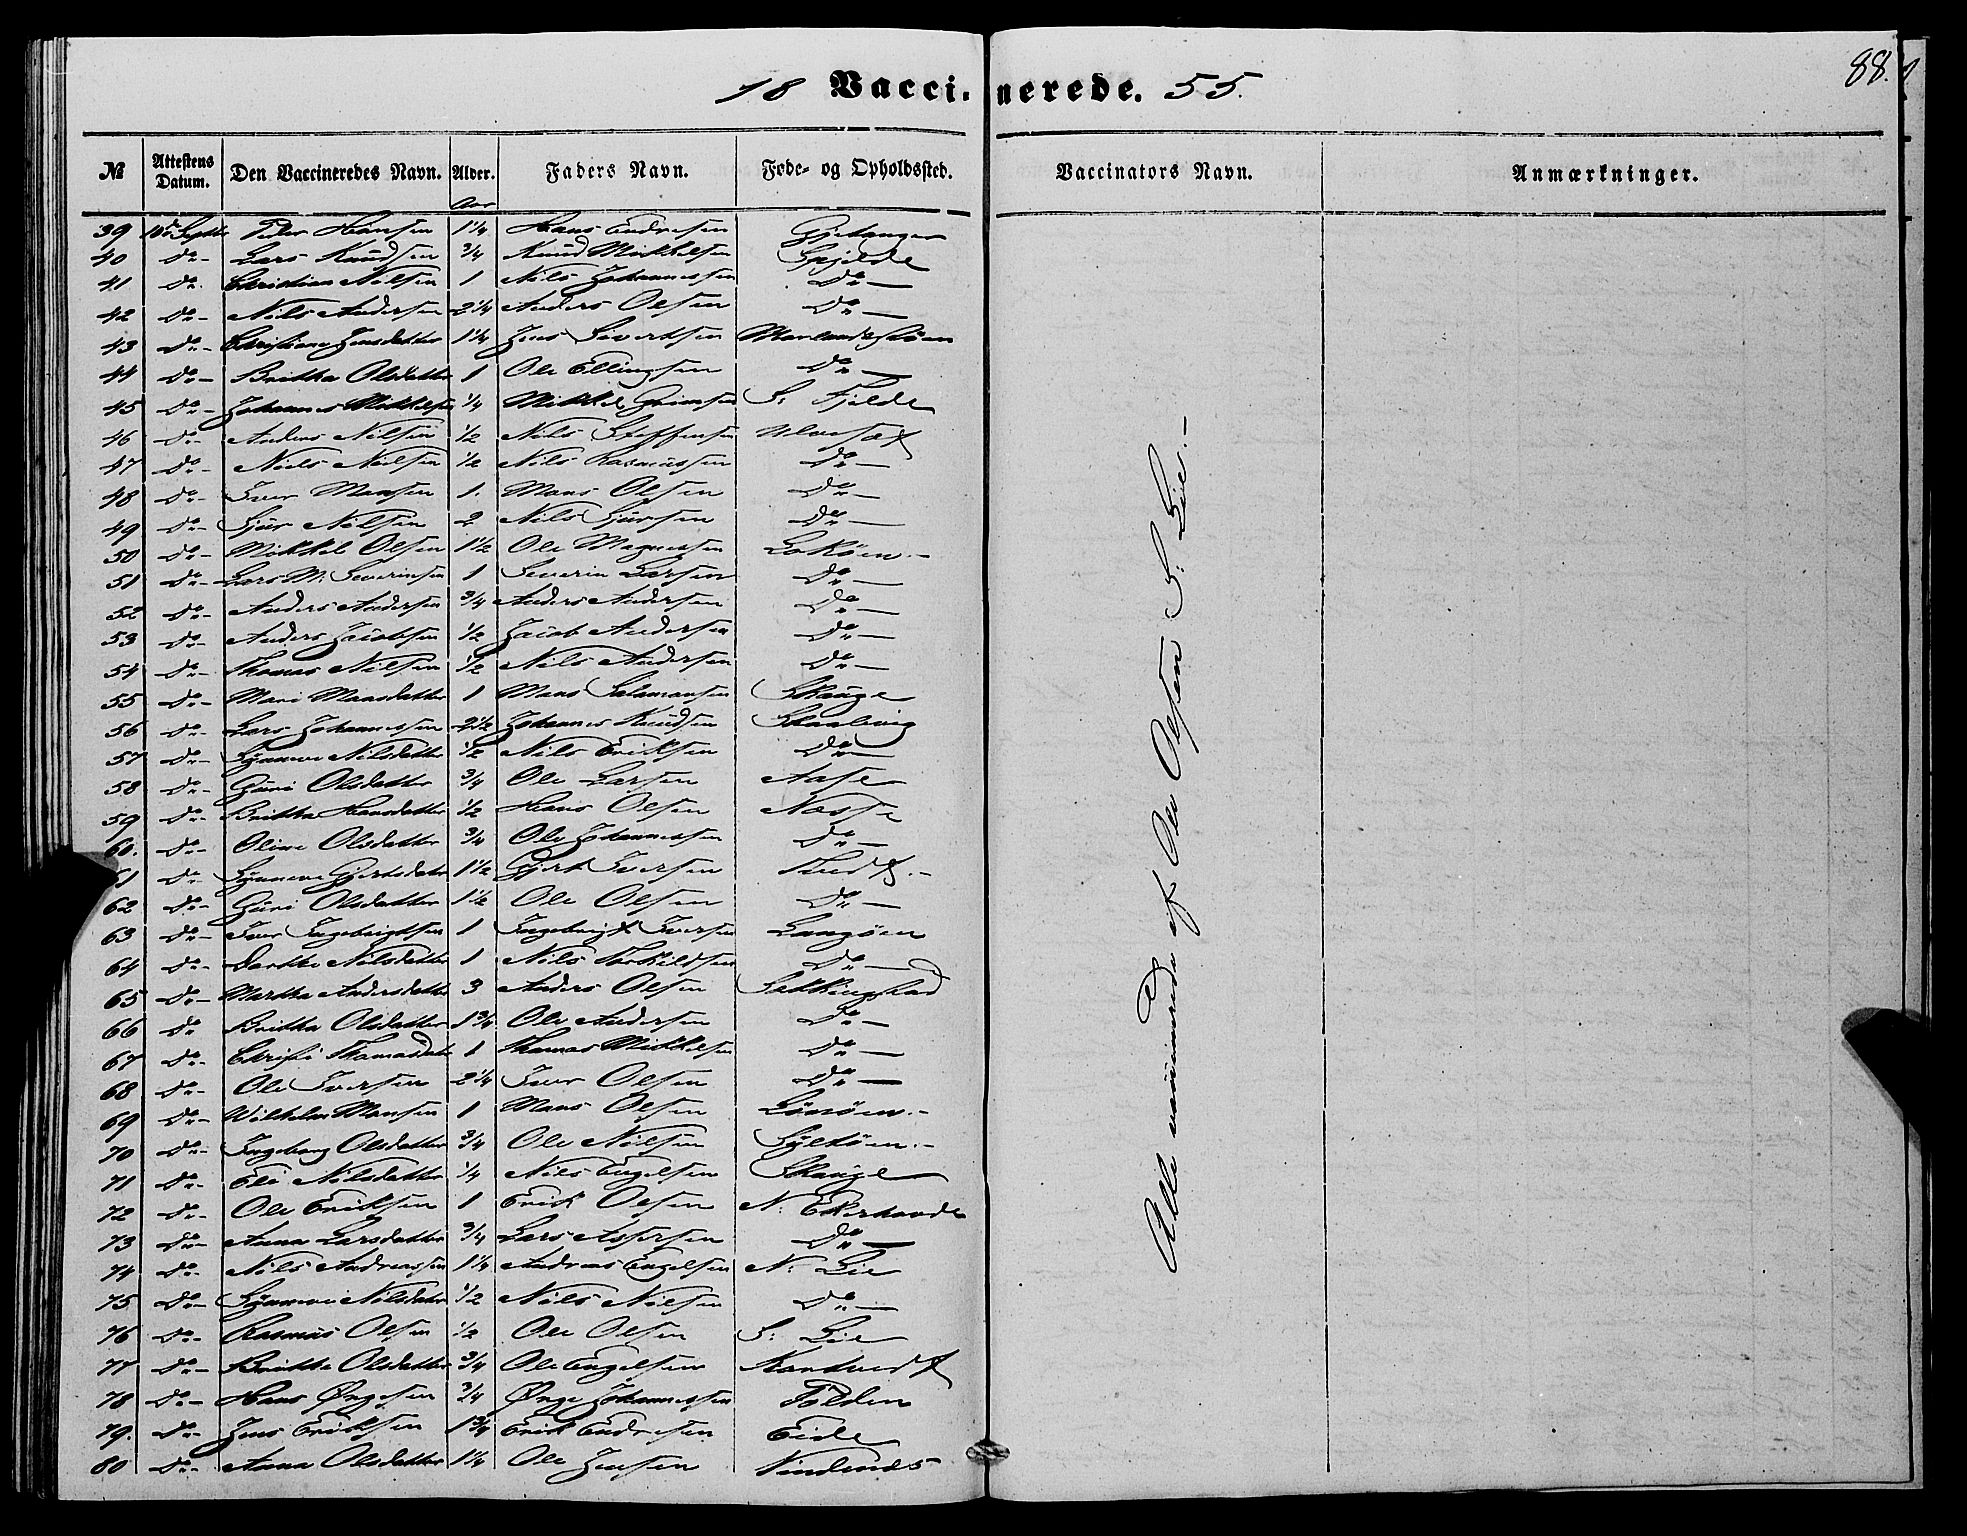 88.
18 Vaccinerede. 55.
№ Attestens Datum. Den Vaccineredes Navn. Alder. Faders Navn. Føde- og Opholdssted. Vaccinators Navn. Anmærkninger.
Aar
39 10de Septbr Peder Hansen 1 1/4 Hans Endresen Gjetanger
40 Do- Lars Knudsen 3/4 Knud Mikkelsen Gjelde
41 Do. Christian Nilsen 1 Nils Johannessen Do-
42 Do- Nils Andersen 2 1/4 Anders Olsen Do-
43 Do- Christiane Jensdatter 1 1/4 Jens Sivertsen
44 Do- Britha Olsdatter 1 Ole Ellingsen Do-
45 Do- Johannes Mikkelsen 1/4 Mikkel Grimsen S: Fjelde
46 Do- Anders Nilsen 1/2 Nils Steffensen Ulvesæt
47 Do- Niels Nielsen 1/2 Nils Rasmussen Do-
48 Do- Iver Mansen 1. Mans Olsen Do-
49 Do- Sjur Nilsen 2 Nils Sjursen Do-
50 Do- Mikkel Olsen 1 1/2 Ole Magnessen Lokøen.-
51 Do- Lars M: Severinsen 1 Severin Larsen Do-
52 Do- Anders Andersen 3/4 Anders Andersen Do-
53 Do- Anders Jacobsen 1/2 Jacob Andersen Do-
54 Do- Thomas Nilsen 1/2 Nils Andersen Do-
55 Do- Mari Mansdatter 1 Mans Salamonsen Skauge
56 Do- Lars Johannessen 2 1/2 Johannes Knudsen Skaalevig
57 Do- Synneve Nilsdatter 1/2 Nils Eriksen Do-
58 Do- Guri Olsdatter 3/4 Ole Larsen Aase
59 Do- Britha Hansdatter 1/2 Hans Olsen Næsse
60. Do- Oline Olsdatter 3/4 Ole Johannessen Do-
61 Do- Synneve Gjertsdatr 1 1/2 Gjert Iversen
62 Do- Guri Olsdatter 1 1/2 Ole Olsen Do-
63 Do- Iver Ingebrigtsen 1 Ingebrigt Iversen Langøen
64 Do- Dorthe Nilsdatter 1 Nils Torkildsen Do-
65 Do- Martha Andersdatter 3 Anders Olsen Sekkingstad
66 Do Britha Olsdatter 1 3/4 Ole Andersen Do-
67 Do- Thomasdatr 1 Thomas Mikkelsen Do-
68 Do- Ole Iversen 2 1/4 Iver Olsen Do-
69 Do- Wilhelm Mansen 1 Mans Olsen Lønøen.-
70 Do- Ingeborg Olsdatter 3/4 Ole Nilsen Syltøen.-
71 Do- Eli Nilsdatter 1/4 Nils Engelsen Skauge
72 Do- Ole Eriksen 1 Erik Olsen N: Ekerhovde
73 Do- Anna Larsdatter 3/4 Lars Assersen Do-
74 Do- Nils Andreassen 1 1/4 Andreas Engelsen N: Lie
75 Do- Synneve Nilsdatr 1/2 Nils Nilsen Do-
76 Do- Rasmus Olsen 1/2 Ole Olsen S: Lie
77 Do- Britha Olsdatter 3/4 Ole Engelsen
78 Do- Hans Øngesen 3/4 Ønge Johannessen Tolden
79. Do- Jens Eriksen 1 3/4 Erik Endresen Eide
80 Do- Anna Olsdatter 1 1/4 Ole Jensen Vindenes
Alle vaccinerede af Ole Olsen S: Lie.-